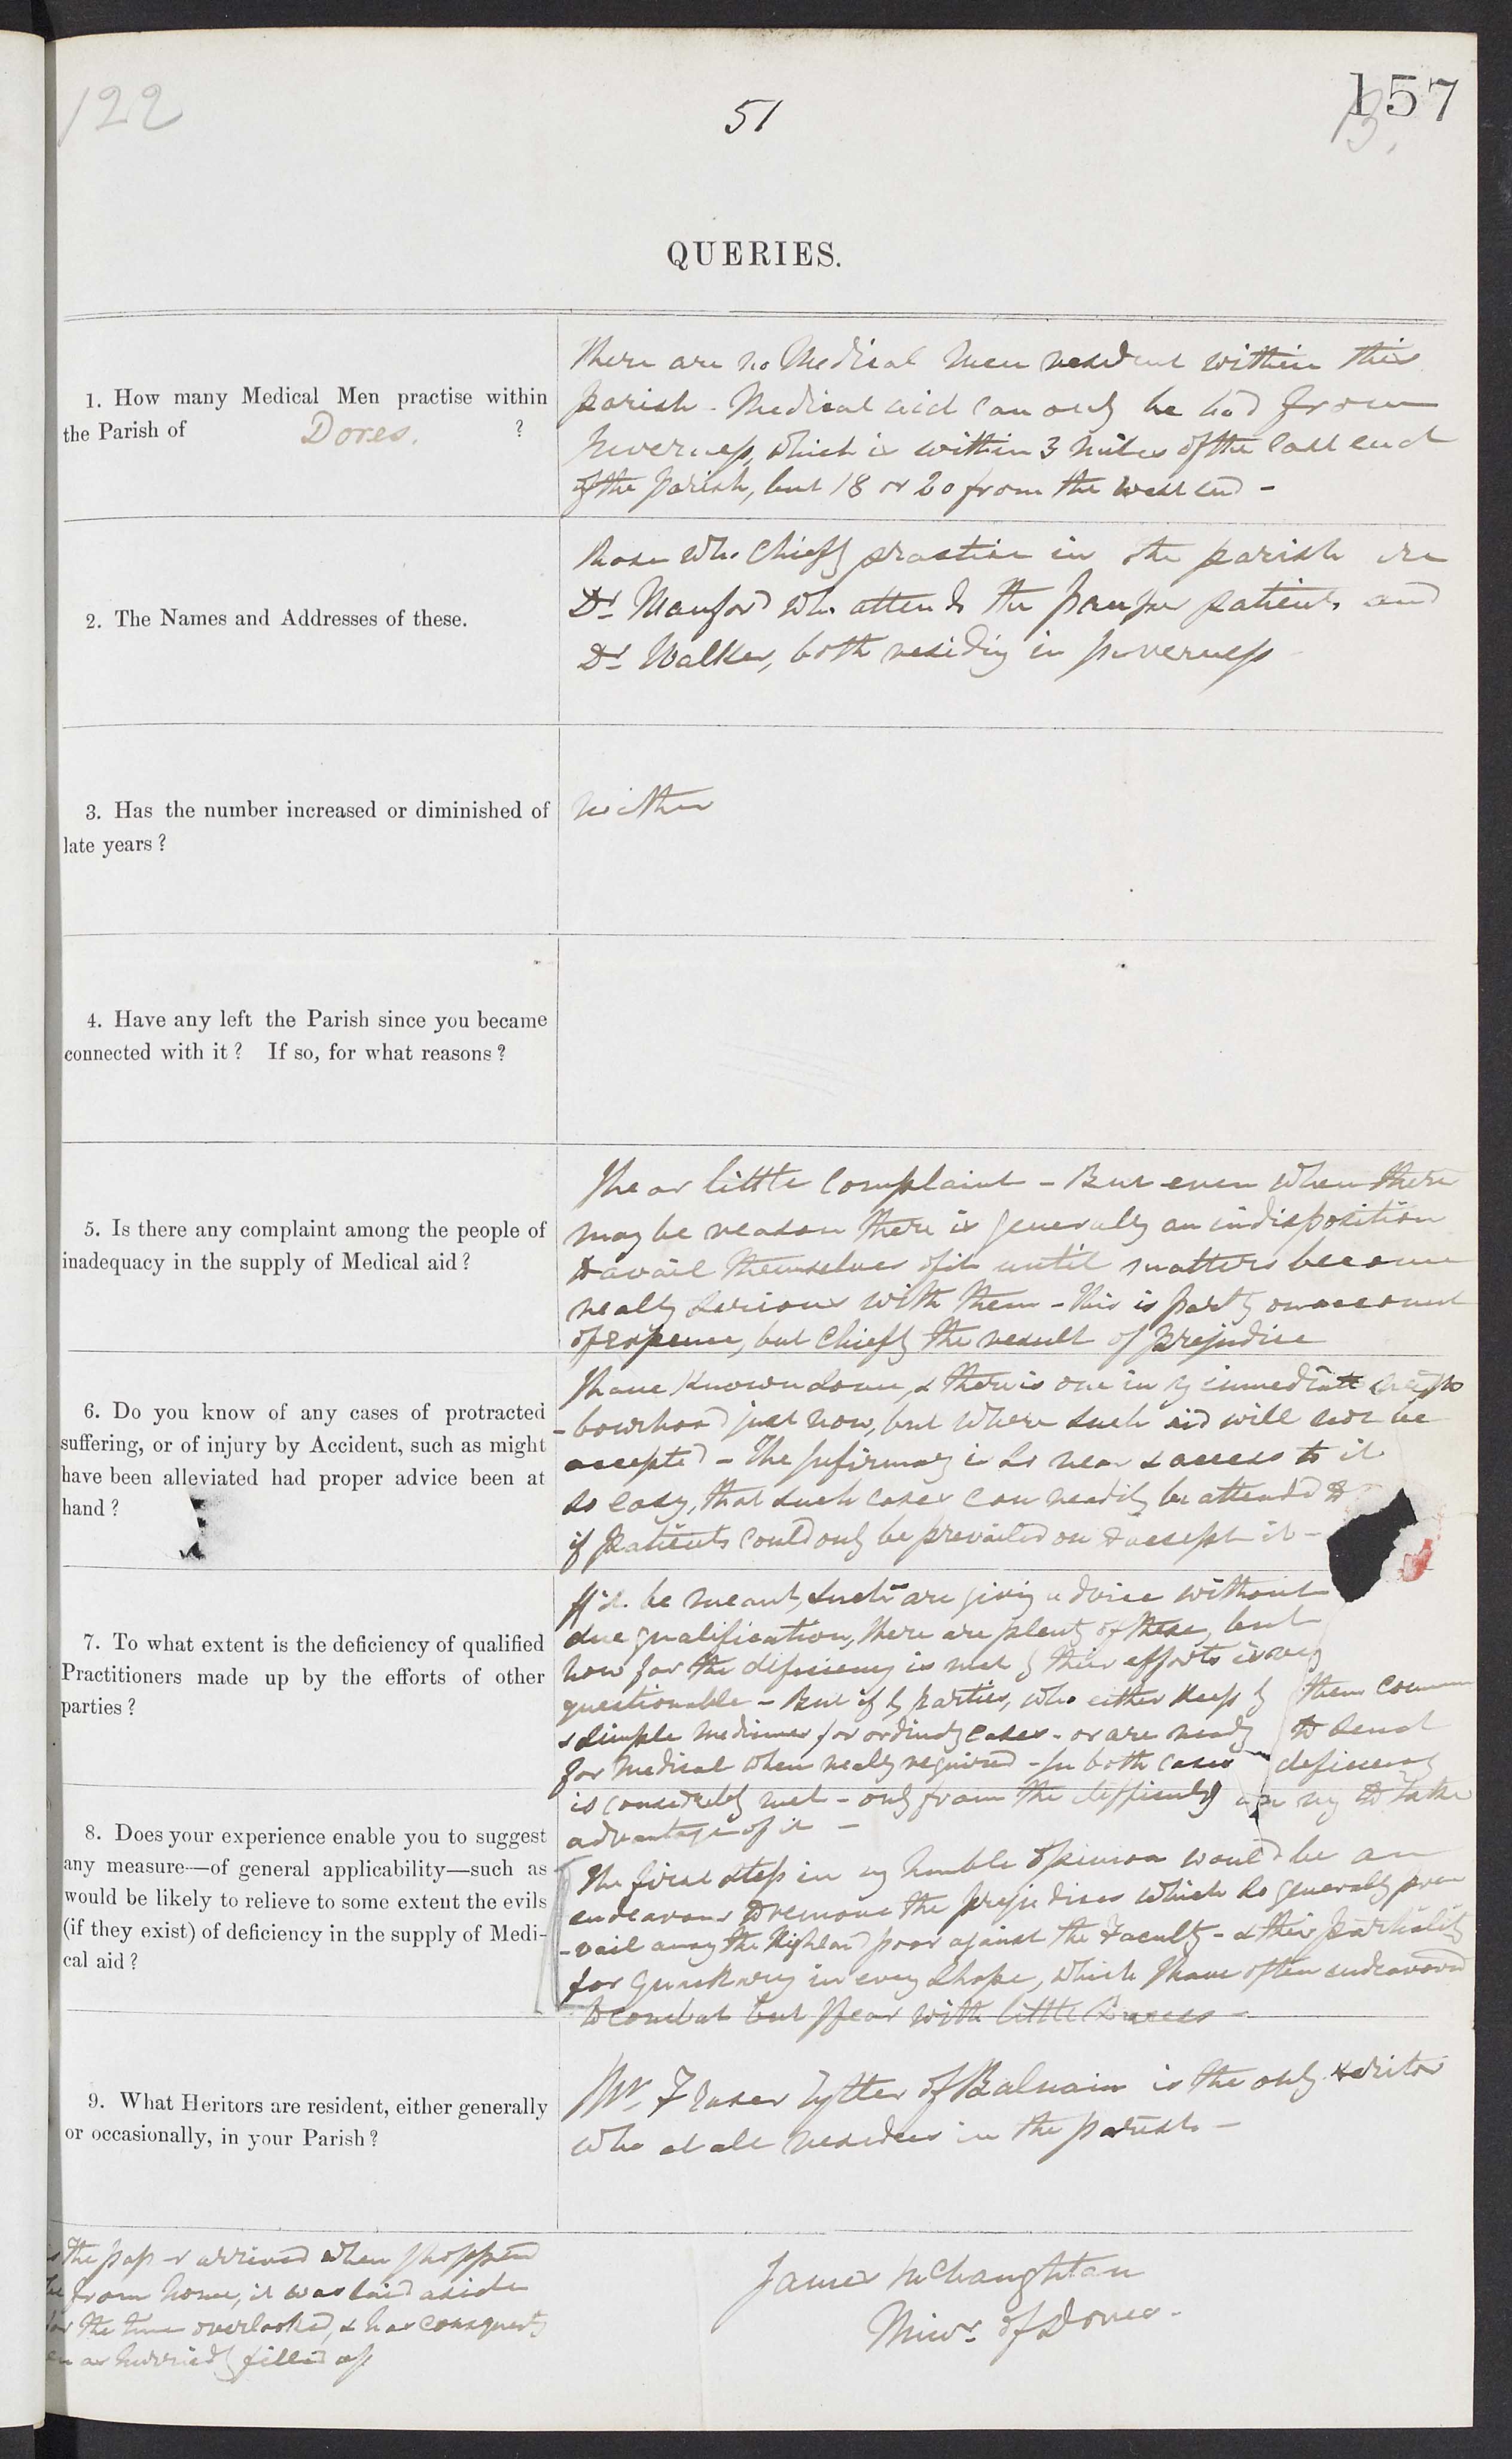 122
51
157
13.
QUERIES.
1. How many Medical Men practise within
the Parish of Dores. ?
There are no Medical Men resident within this
parish - Medical aid can only be had from
Inverness, which is within 3 miles of the East end
of the parish, but 18 or 20 from the West end -
2. The Names and Addresses of these.
Those who chiefly practise in the parish are
Dr. Manford who attends the pauper patients and
Dr. Walker, both residing in Inverness
3. Has the number increased or diminished of
late years ?
neither
4. Have any left the Parish since you became
connected with it ? If so, for what reasons ?
5. Is there any complaint among the people of
inadequacy in the supply of Medical aid ?
I hear little complaint - But even when there
may be reason there is generally an indisposition
to avail themselves of it until matters become
really serious with them - This is partly on account
of expence, but chiefly the result of prejudice
6. Do you know of any cases of protracted
suffering, or of injury by Accident, such as might
have been alleviated had proper advice been at
hand ?
I have known some, & there is one in my immediate neigh
-bourhood just now, but where such aid will not be
accepted - The Infirmary is so near & access to it
so easy, that such cases can readily be attended to
if patients could only be prevailed on to accept it -
7. To what extent is the deficiency of qualified
Practitioners made up by the efforts of other
parties ?
If it be meant, such as are giving advice without
due qualification, there are plenty of these, but
how far the deficiency is met by their efforts is very
questionable - But if by parties, who either keep by them common
& simple medicines for ordinary cases - or are ready to send
for Medical when really required - In both cases deficiency
is considerably met - only from the difficulty to take
advantage of it -
8. Does your experience enable you to suggest
any measure—of general applicability—such as
would be likely to relieve to some extent the evils
(if they exist) of deficiency in the supply of Medi-
cal aid ?
The first step in my humble opinion would be an
endeavour to remove the prejudices which so generally pre
-vail among the Highland poor against the Faculty - & their partiality
for Quackery in every shape, which I have often endeavoured
to combat but I fear with little success -
9. What Heritors are resident, either generally
or occasionally, in your Parish ?
Mr. Fraser Tytler of Balnain is the only Heritor
who at all resides in the parish -
The paper arrived when I happened
from home, it was laid aside
for the time overlooked, & has consequently
hurriedly filled up
James McNaughtan
Minr. of Dores -